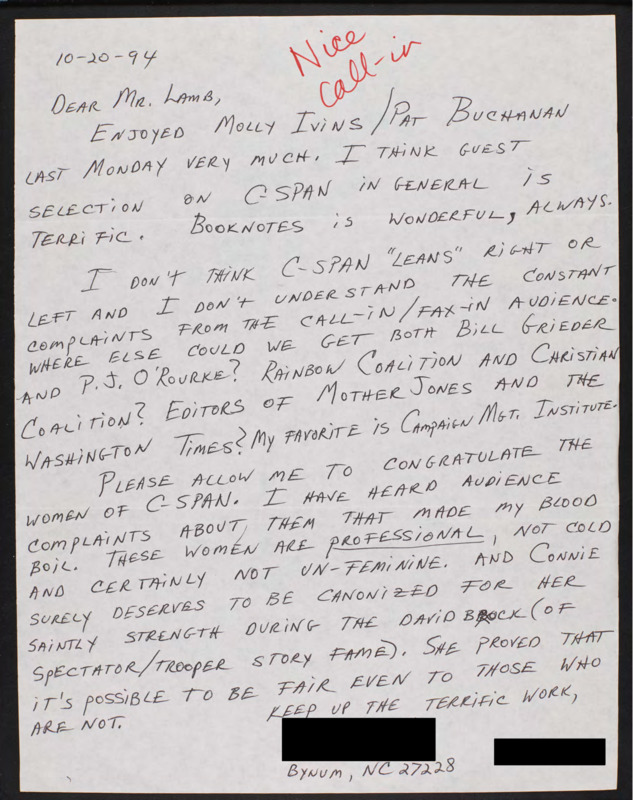 10-20-94
Nice
call-in
DEAR MR. LAMB,
ENJOYED MOLLY IVINS/PAT BUCHANAN
LAST MONDAY VERY MUCH. I THINK GUEST
SELECTION ON C-SPAN IN GENERAL IS
TERRIFIC. BOOKNOTES IS WONDERFUL, ALWAYS.
I DON'T THINK C-SPAN "LEANS" RIGHT OR
LEFT AND I DON'T UNDERSTAND THE CONSTANT
COMPLAINTS FROM THE CALL-IN/FAX-IN AUDIENCE.
WHERE ELSE COULD WE GET BOTH BILL GRIEDER
AND P.J. O'ROURKE? RAINBOW COALITION AND CHRISTIAN
COALITION? EDITORS OF MOTHER JONES AND THE
WASHINGTON TIMES? MY FAVORITE IS CAMPAIGN MGT. INSTITUTE.
PLEASE ALLOW ME TO CONGRATULATE THE
WOMEN OF C-SPAN. I HAVE HEARD AUDIENCE
COMPLAINTS ABOUT THEM THAT MADE MY BLOOD
BOIL. THESE WOMEN ARE PROFESSIONAL, NOT COLD
AND CERTAINLY NOT UN-FEMININE. AND CONNIE
SURELY DESERVES TO BE CANONIZED FOR HER
SAINTLY STRENGTH DURING THE DAVID BROCK (OF
SPECTATOR/TROOPER STORY FAME). SHE PROVED THAT
IT'S POSSIBLE TO BE FAIR EVEN TO THOSE WHO
ARE NOT.
KEEP UP THE TERRIFIC WORK,
BYNUM, NC 27228